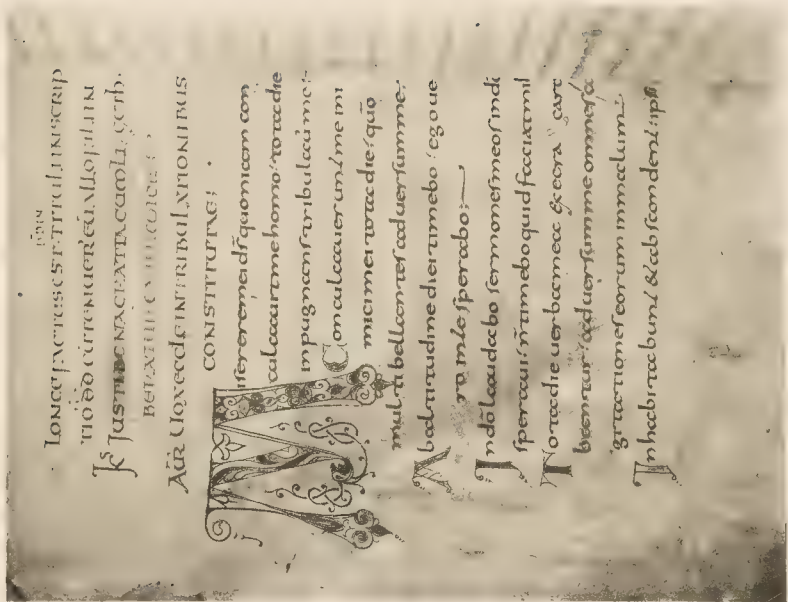 LONGE FACTUS EST· TITULI INSCRIP
TIO DD CU TENUER̄ EŪ ALLOFILI IN
GETH·
UOX IN TRIBULATIONIBUS
CONSTITUTAE;
Miserere mei d̄s quoniam con
culcauit me homo: tota die
inpugnans tribulauit me;
Conculcauerunt me ini
mici mei tota die: qūo
multi bellantes aduersum me;
Ab altitudine diei timebo: ego ue
ro in te sperabo;
In dō laudabo sermones meos in dī
speraui: n̄ timebo quid faciat mi
Tota die uerba mea execra
bantur: aduersum me omnes co
gitationes eorum in malum;
Inhabitabunt & abscondent: ipsi